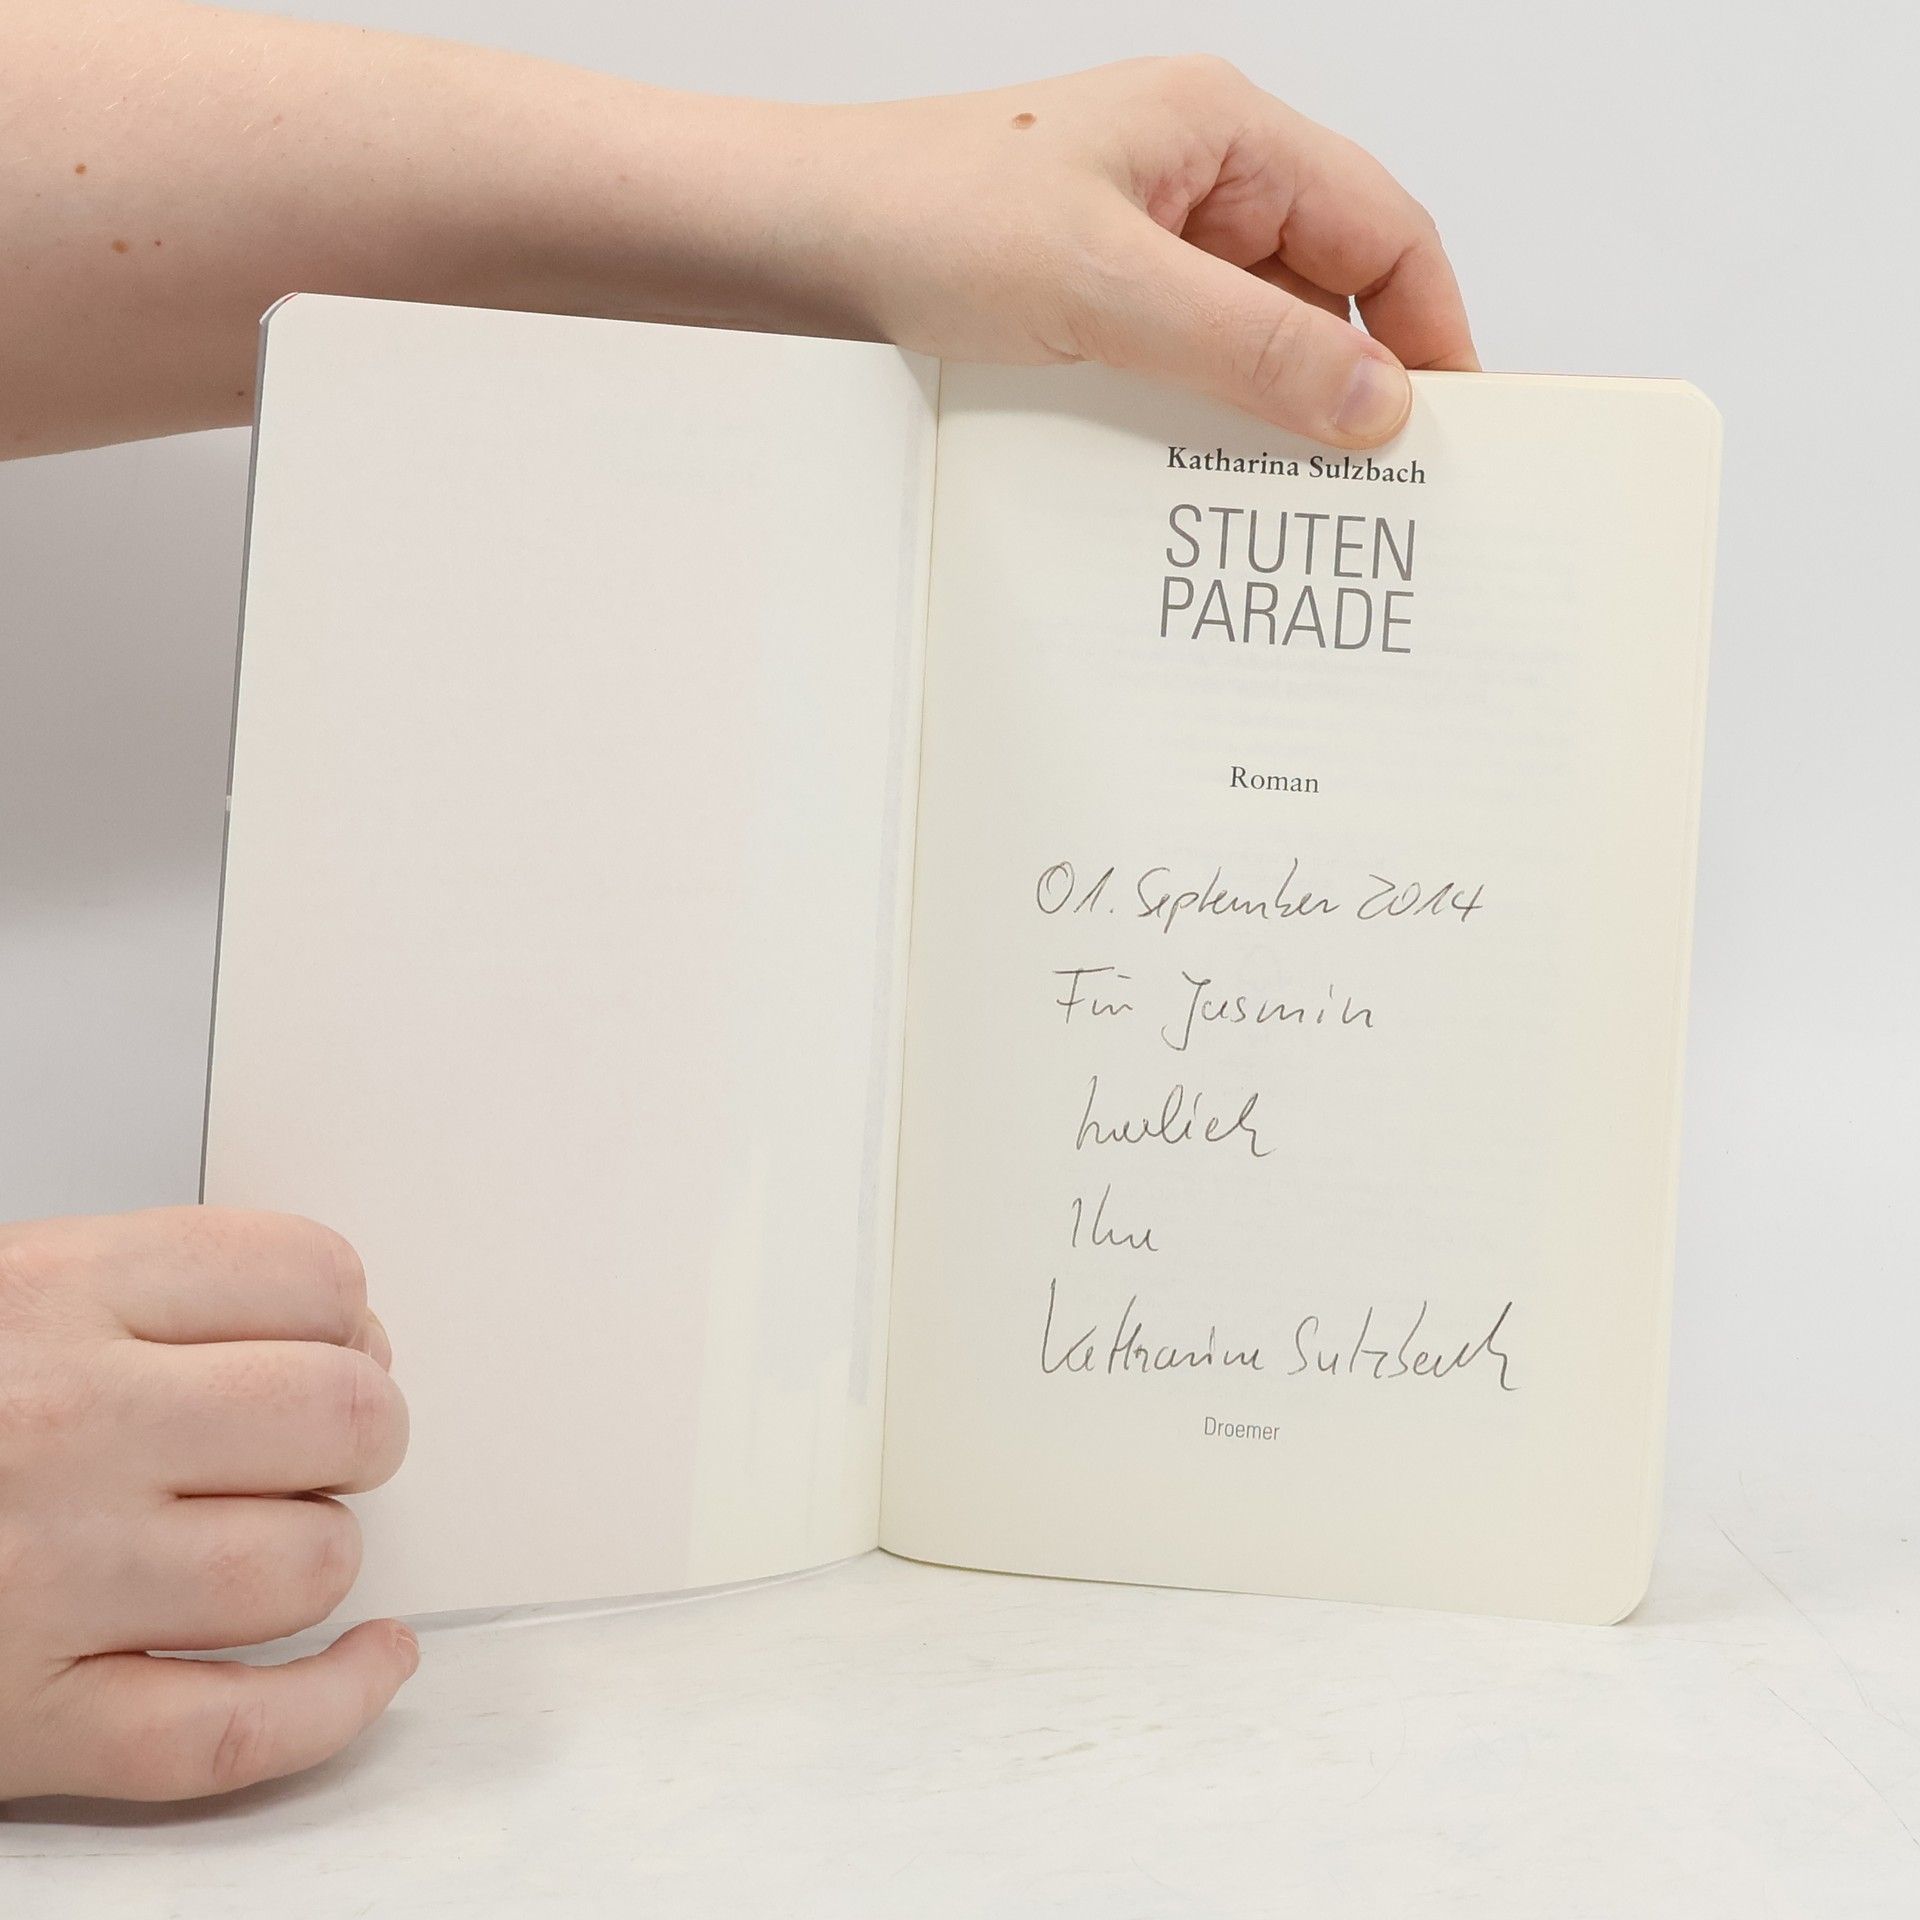 Katharina Sulzbach
STUTEN
PARADE
Roman
01. September 2014
Für Jasmin
herzlich
Ihre
Katharina Sulzbach
Droemer